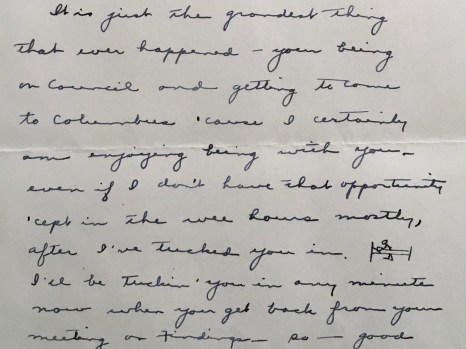 It is just the grandest thing
that ever happened – your being
on Council and getting to come
to Columbus 'cause I certainly
am enjoying being with you –
even if I don't have that opportunity
'cept in the wee hours mostly,
after I've tucked you in.
I'll be tuckin' you in any minute
now when you get back from your
meeting on Findings – so – good